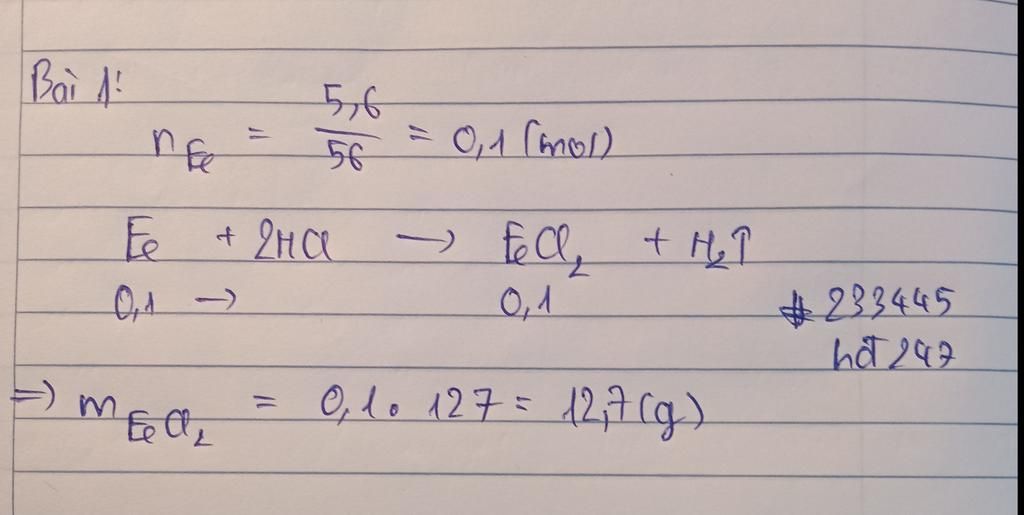 Bài 1:
n Fe = 5,6 / 56 = 0,1 (mol)
Fe + 2HCl → FeCl₂ + H₂↑
0,1 → 0,1
# 233445
hđ 247
=> m FeCl₂ = 0,1 . 127 = 12,7 (g)